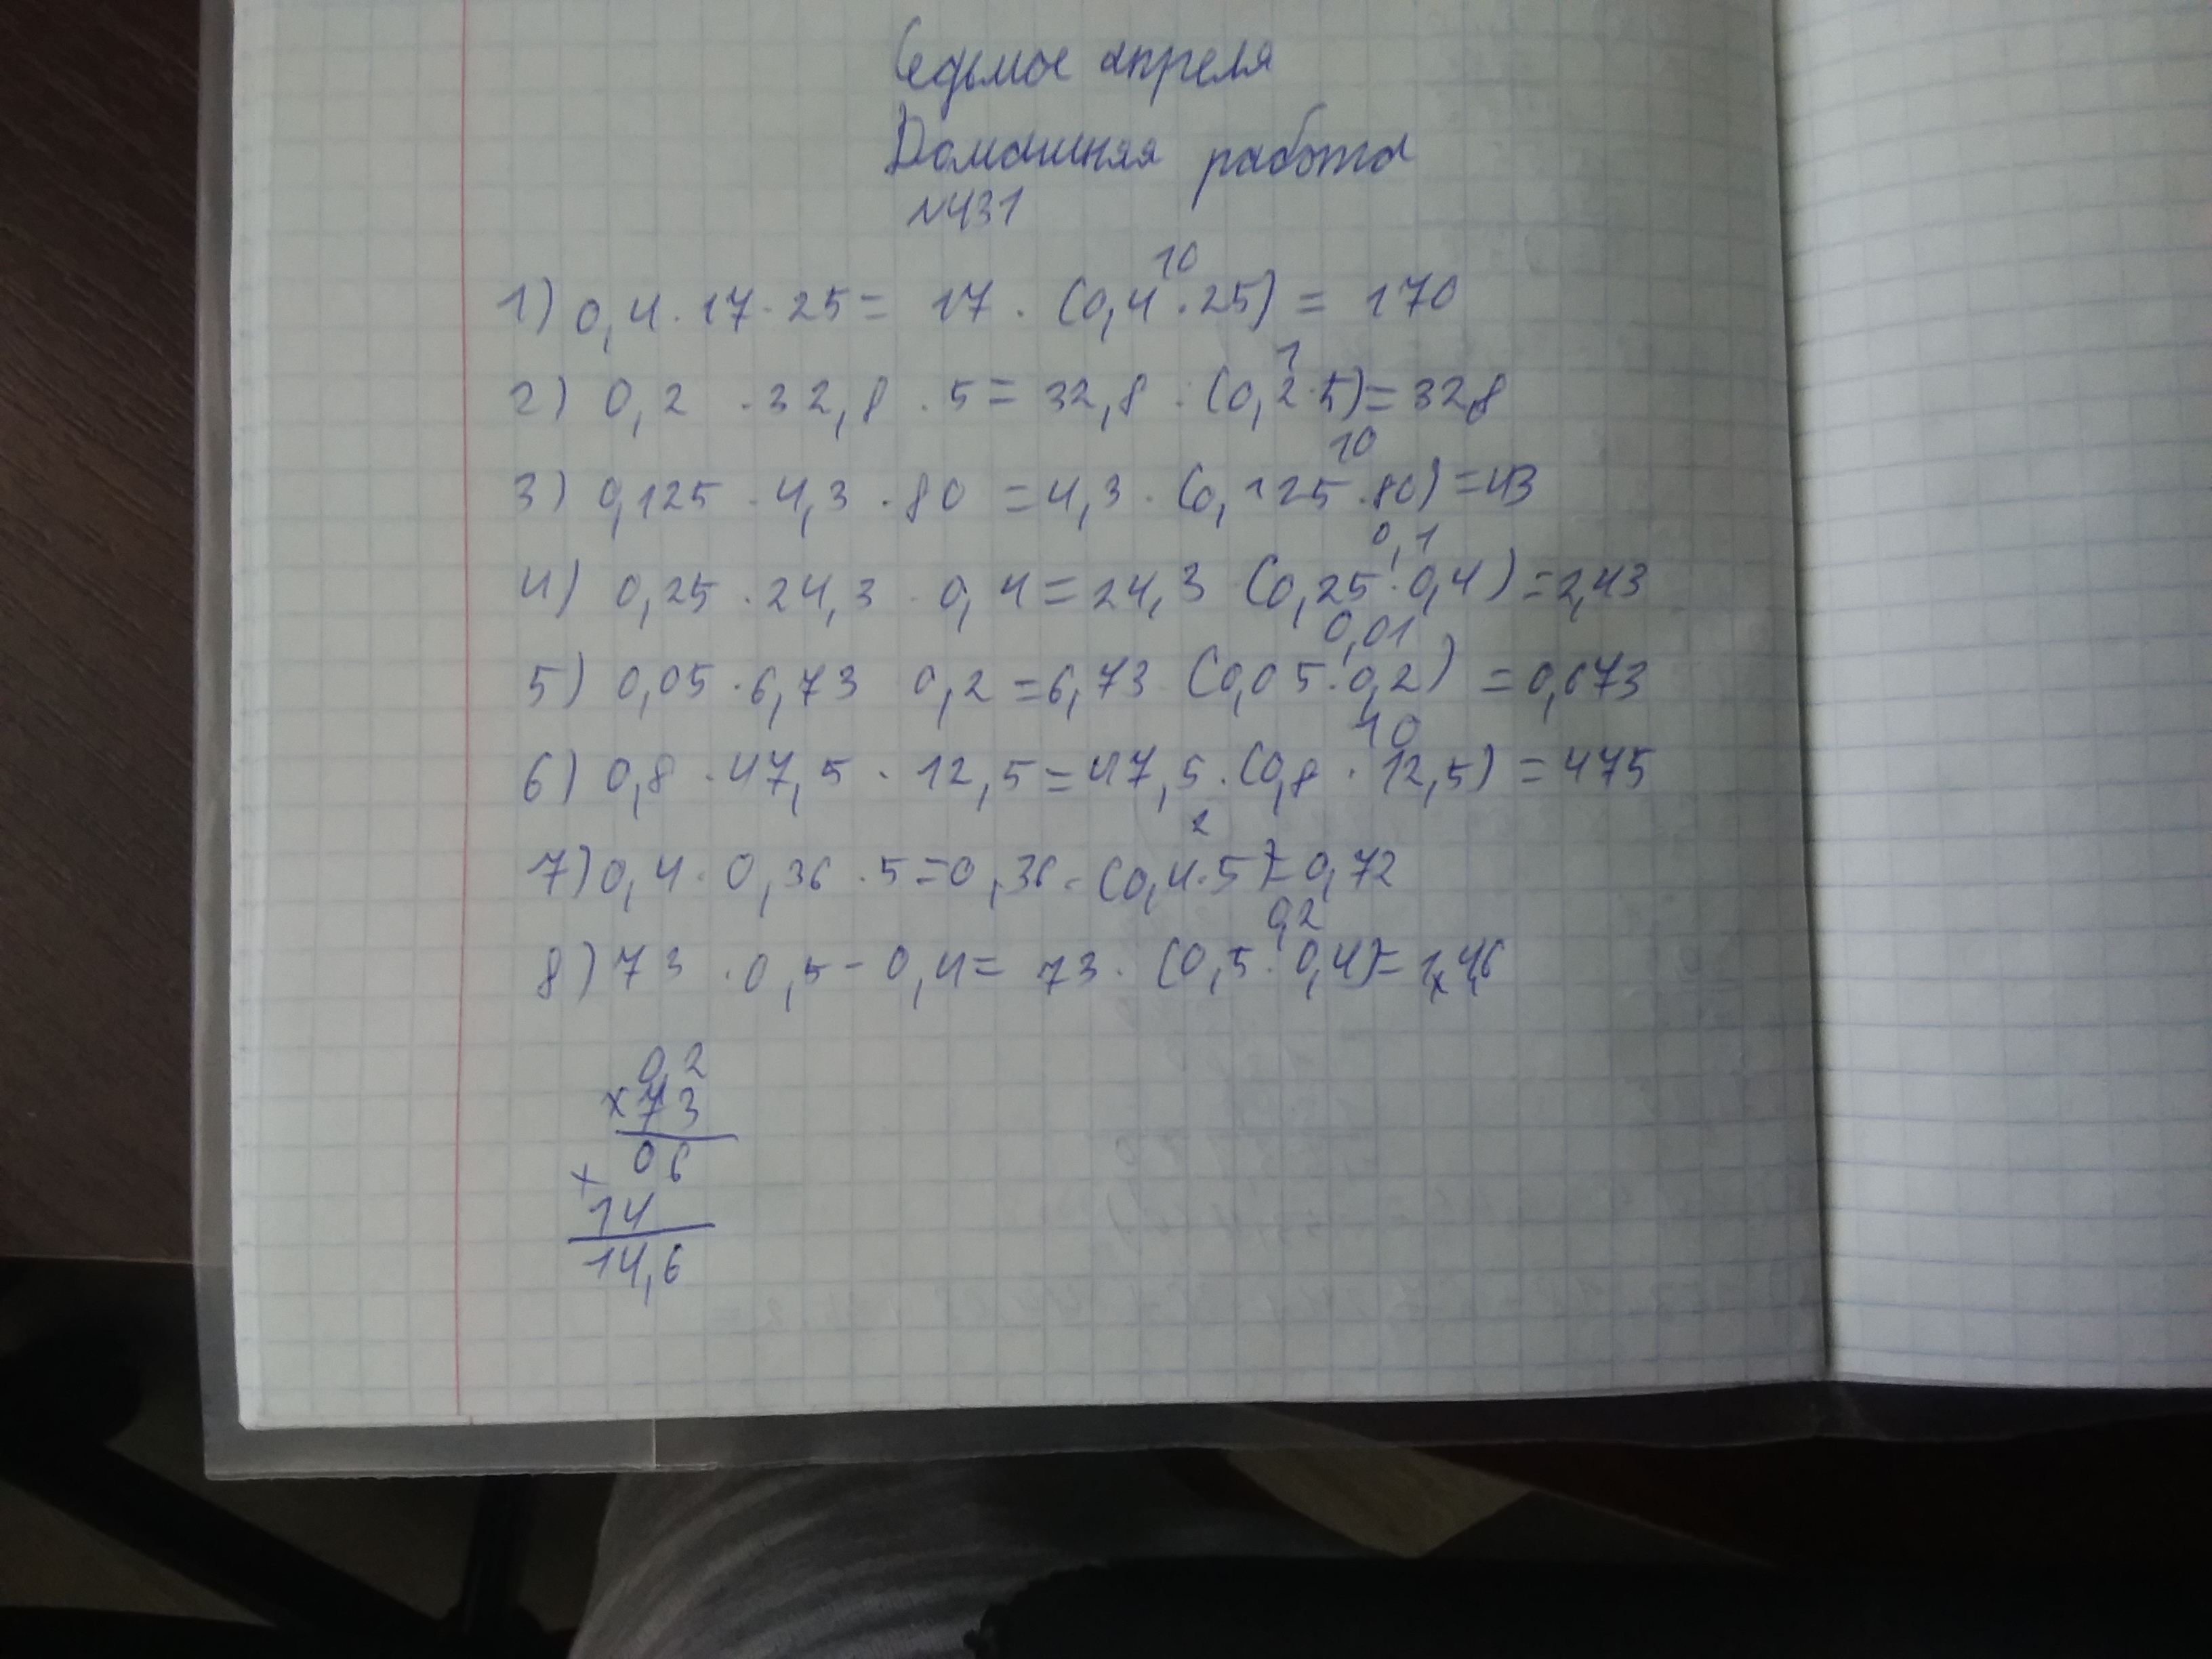 Седьмое апреля
Домашняя работа
№431
10
1) 0,4 · 17 · 25 = 17 · (0,4 · 25) = 170
1
2) 0,2 · 32,8 · 5 = 32,8 · (0,2 · 5) = 32,8
10
3) 0,125 · 4,3 · 80 = 4,3 · (0,125 · 80) = 43
0,1
4) 0,25 · 24,3 · 0,4 = 24,3 (0,25 · 0,4) = 2,43
0,01
5) 0,05 · 6,73 0,2 = 6,73 · (0,05 · 0,2) = 0,673
10
6) 0,8 · 47,5 · 12,5 = 47,5 · (0,8 · 12,5) = 475
2
7) 0,4 · 0,36 · 5 = 0,36 · (0,4 · 5) = 0,72
0,2
8) 73 · 0,5 - 0,4 = 73 · (0,5 · 0,4) = 14,6
0,2
x 73
06
+
14
14,6